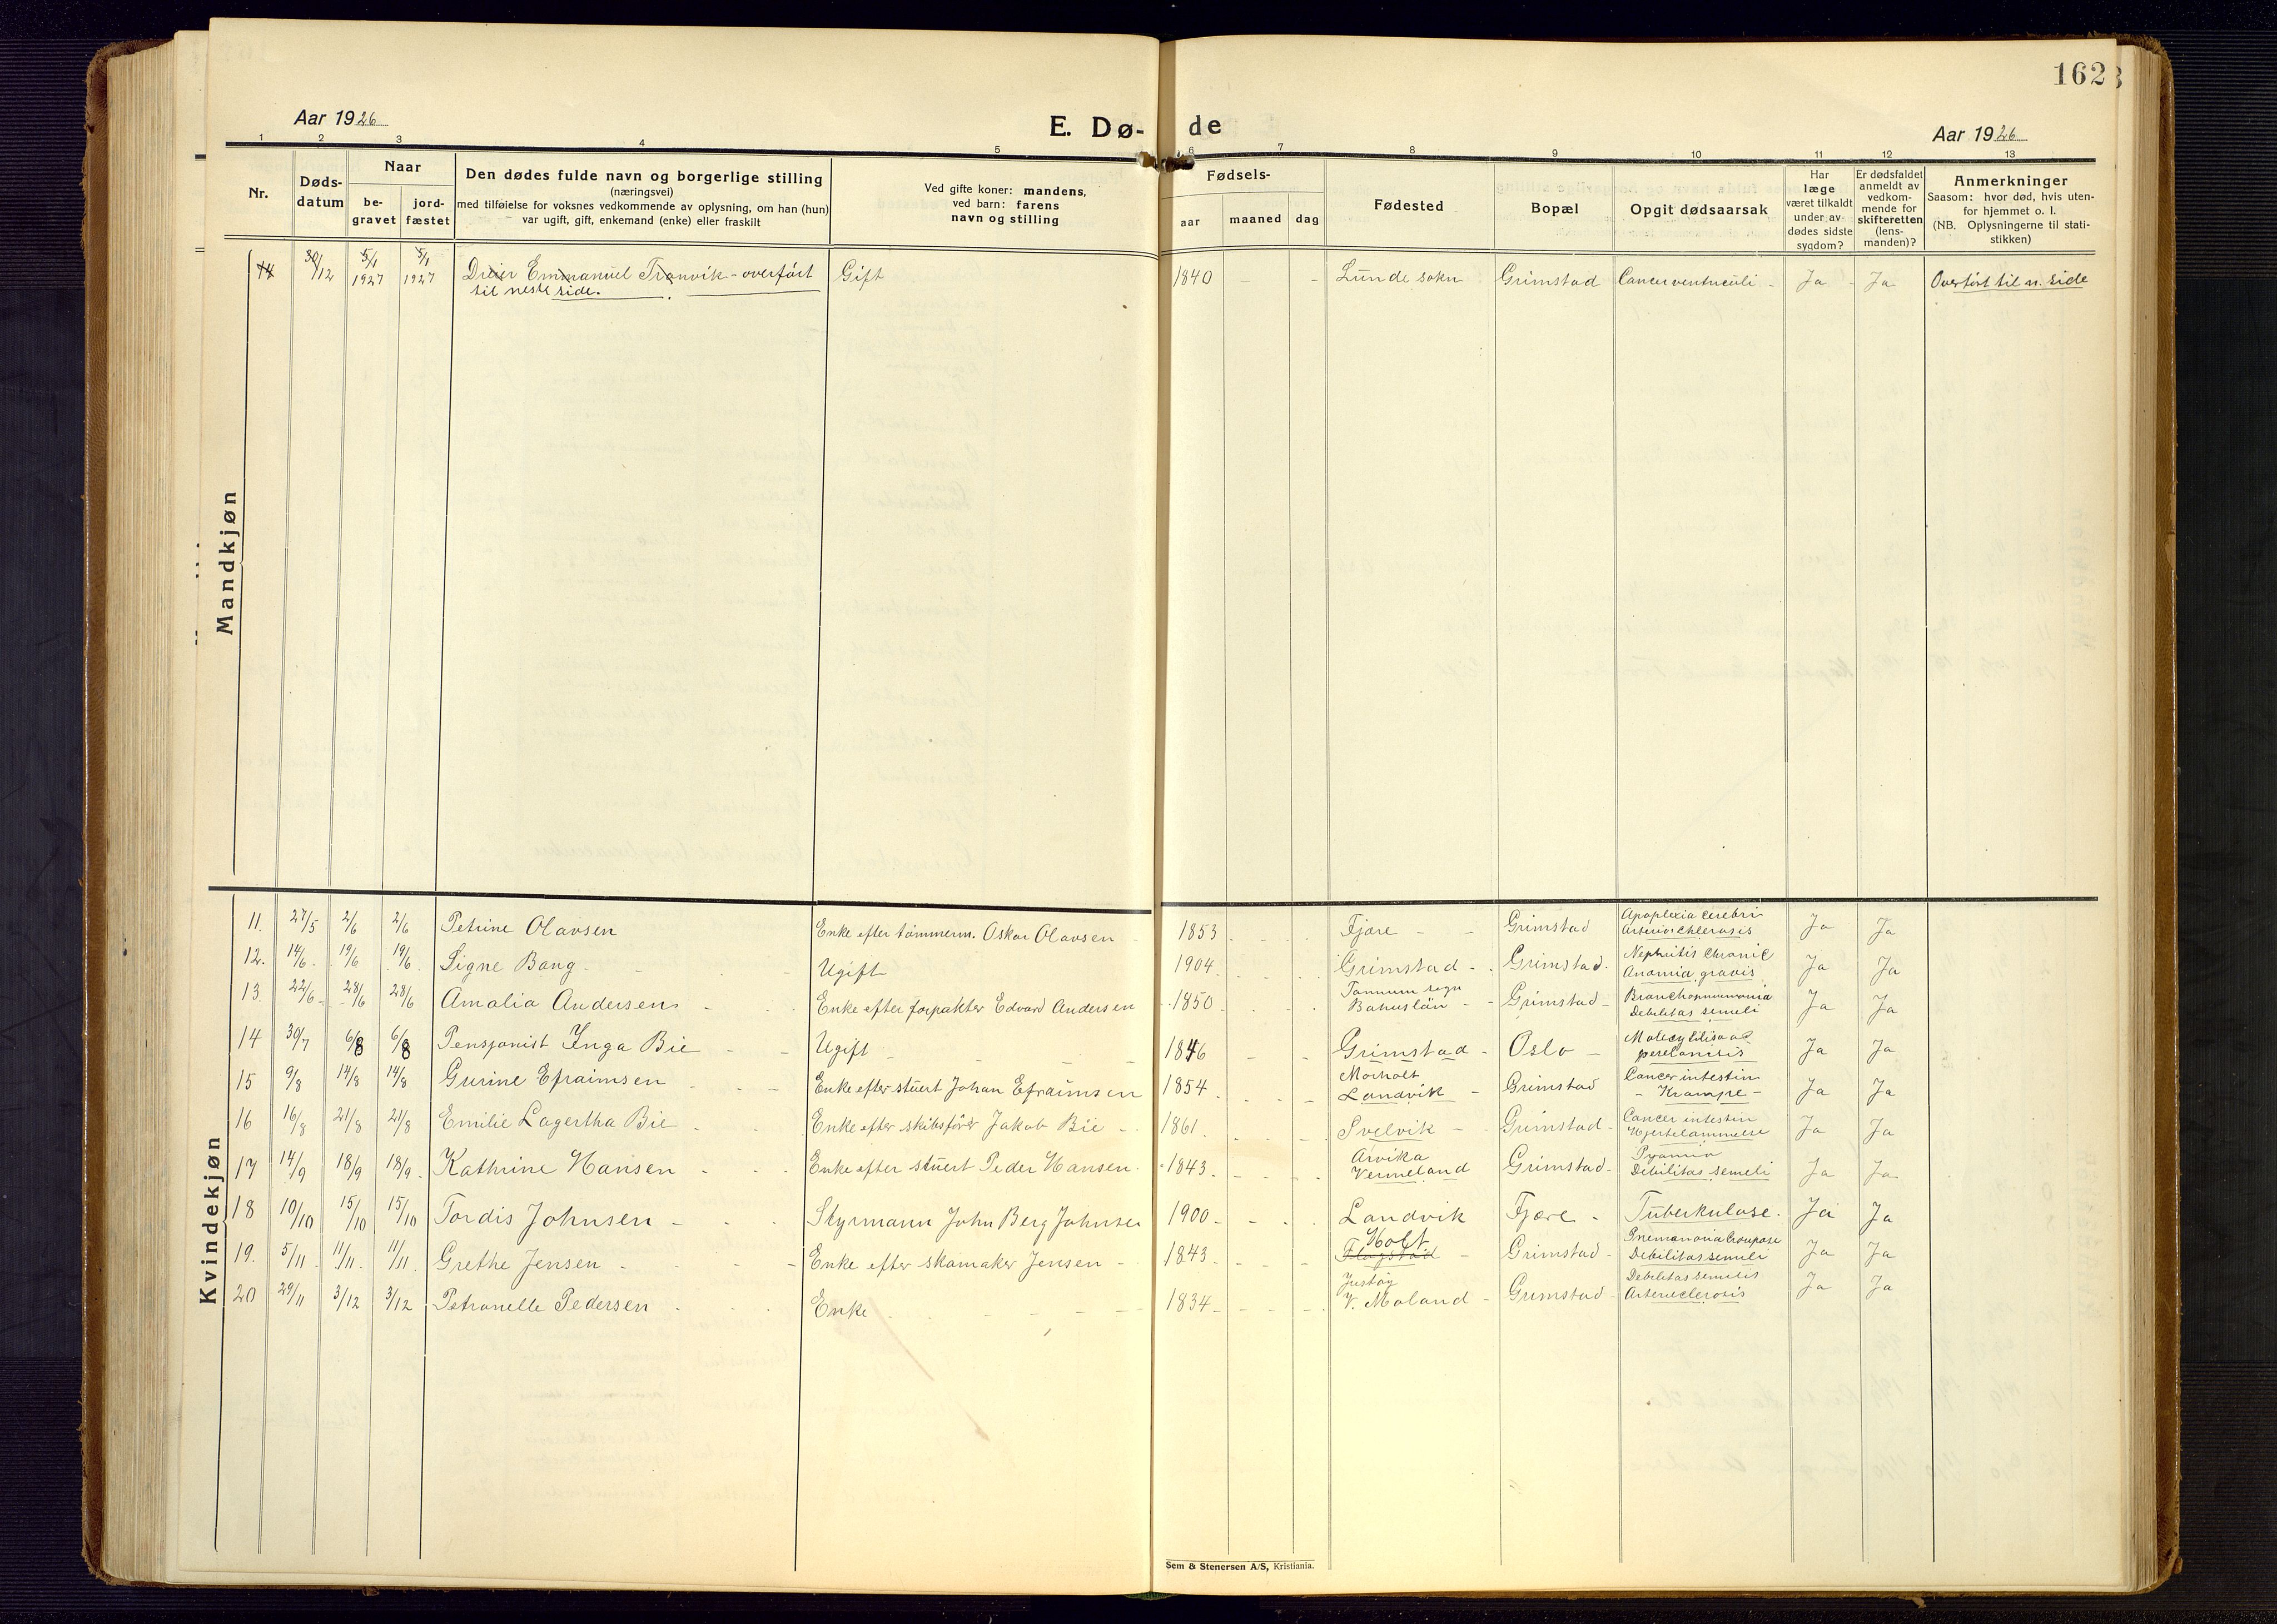 162
Aar 1926
E. Dø- de
Aar 1926
1 2 3 4 5 6 7 8 9 10 11 12 13
Nr.
Døds-
datum
Naar
be-
gravet
jord-
fæstet
Den dødes fulde navn og borgerlige stilling
(næringsvei)
med tilføielse for voksnes vedkommende av oplysning, om han (hun)
var ugift, gift, enkemand (enke) eller fraskilt
Ved gifte koner: mandens,
ved barn: farens
navn og stilling
Fødsels-
aar
maaned
dag
Fødested
Bopæl
Opgit dødsaarsak
Har
læge
været tilkaldt
under av-
dødes sidste
sygdom?
Er dødsfaldet
anmeldt av
vedkom-
mende for
skifteretten
(lens-
manden)?
Anmerkninger
Saasom: hvor død, hvis uten-
for hjemmet o. l.
(NB. Oplysningerne til stati-
stikken)
Mandkjøn
14 30/12 5/1 1927 5/1 1927 Emmanuel Tronvik - overført Gift 1840 - - Lunde sokn Grimstad Cancer ventriculi - Ja - Ja Overført til n. side
til neste side.
Kvindekjøn
11. 27/5 2/6 2/6 Petrine Olavsen Enke efter tømmerm. Oskar Olavsen 1853 Fjære - - Grimstad Apoplexia cerebri Ja Ja
12. 14/6 19/6 19/6 Signe Bang - Ugift 1904 Grimstad - Grimstad Nephritis Chronic Ja Ja
13. 22/6 28/6 28/6 Amalia Andersen Enke efter forpakter Edvard Andersen 1850 Bahuslän - Grimstad - Debilitas Ja Ja
14 30/7 6/8 6/8 Pensjonist Inga Bie Ugift 1846 Grimstad - Oslo - Ja Ja
15 9/8 14/8 14/8 Gurine Efraimsen Enke efter stuert Johan Efraimsen 1854 Morholt Landvik - Grimstad Cancer intestin - Krampe - Ja Ja
16 16/8 21/8 21/8 Emilie Lagertha Bie Enke efter skibsfører Jakob Bie - 1861 Svelvik - Grimstad - Cancer intestin Hjertelammelse Ja Ja
17 14/9 18/9 18/9 Kathrine Hansen Enke efter stuert Peder Hansen 1843 Arvika Vermeland Grimstad - Debilitas Ja Ja
18 10/10 15/10 15/10 Tordis Johnsen - Styrmann John Berg Johnsen 1900 - Landvik Fjære - Tuberkulose. Ja Ja
19. 5/11 11/11 11/11 Grethe Jensen - Enke efter skomaker Jensen - 1843 Holt Grimstad - Debilitas Ja Ja
20 29/11 3/12 3/12 Petronelle Pedersen Enke 1834 - Justøy V. Moland - Grimstad - Debilitas Ja Ja
Sem & Stenersen A/S, Kristiania.